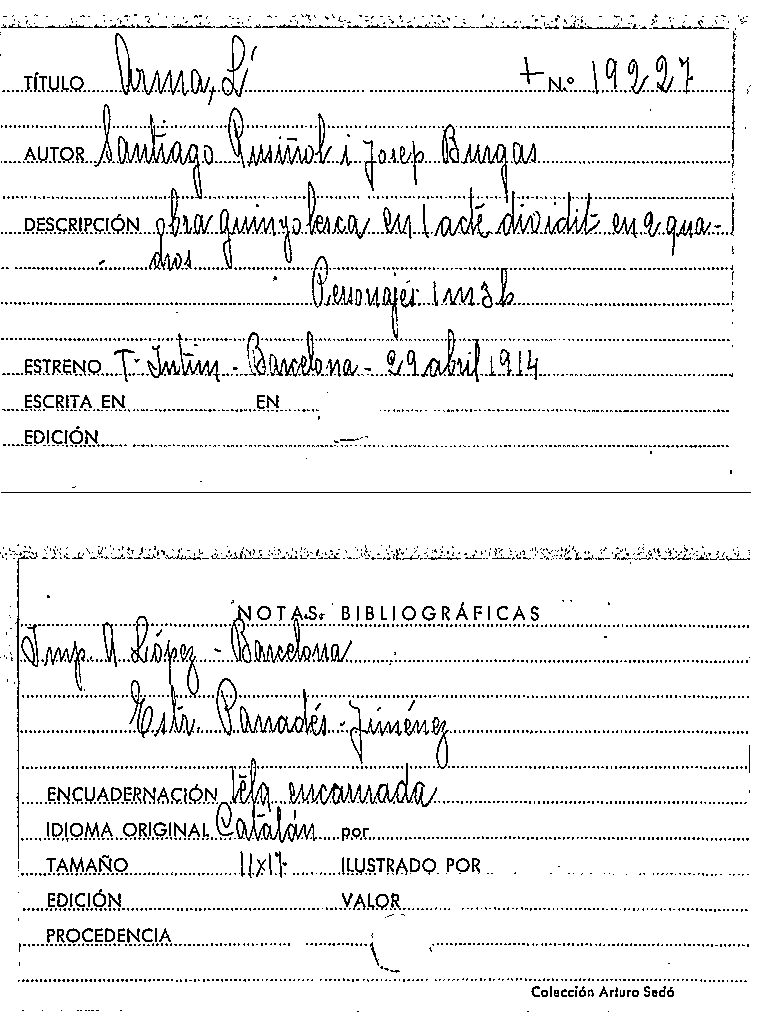 TÍTULO Arma, L' + N.º 19227
AUTOR Santiago Rusiñol i Josep Burgas
DESCRIPCIÓN obra guinyolesca en 1 acte dividit en 2 qua-
dros
Personajes 1 m 3 h
ESTRENO T. Íntim - Barcelona - 29 abril 1914
ESCRITA EN EN
EDICIÓN —
NOTAS BIBLIOGRÁFICAS
Imp. A López - Barcelona
Estr. Panadés - Jiménez
ENCUADERNACIÓN tela encarnada
IDIOMA ORIGINAL Catalán por
TAMAÑO 11x17 ILUSTRADO POR
EDICIÓN VALOR
PROCEDENCIA
Colección Arturo Sedó